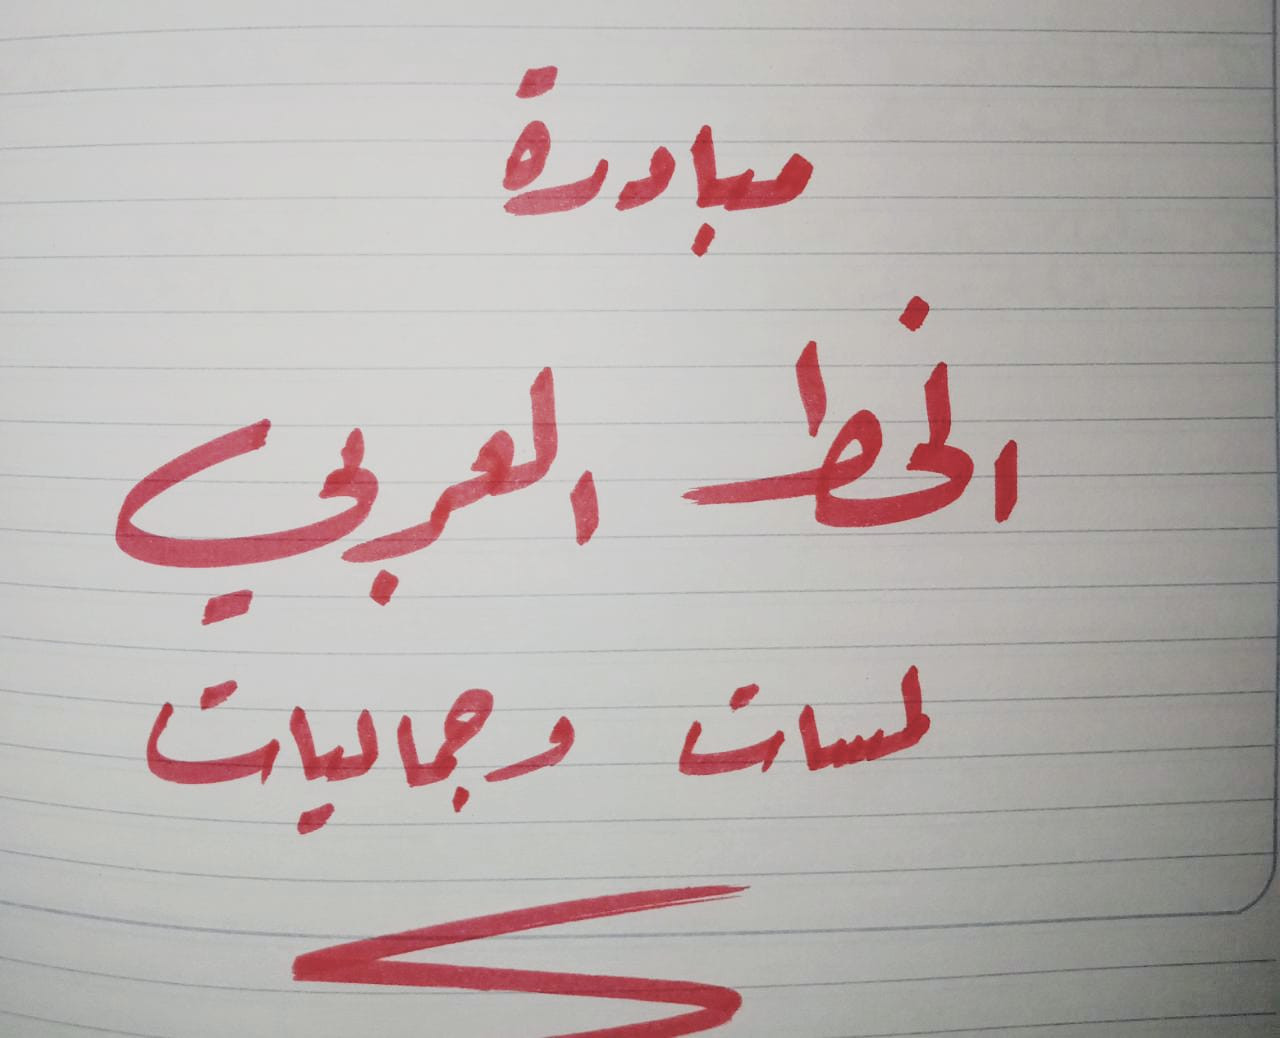 مبادرة
الخط العربي
لمسات وجماليات